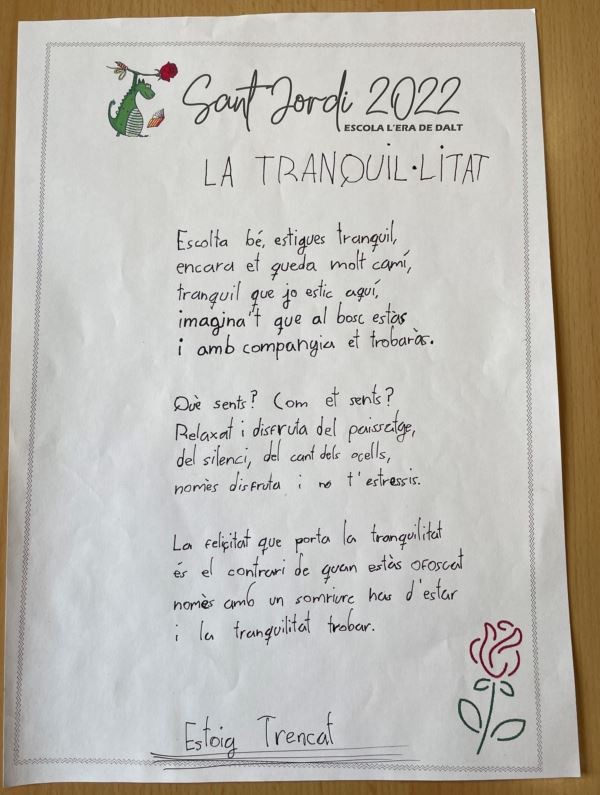 Sant Jordi 2022
ESCOLA L'ERA DE DALT
LA TRANQUIL·LITAT
Escolta bé, estigues tranquil,
encara et queda molt camí,
tranquil que jo estic aquí,
imagina't que al bosc estàs
i amb compangia et trobaràs.
Què sents? Com et sents?
Relaxat i disfruta del paissatge,
del silenci, del cant dels ocells,
nomès disfruta i no t'estressis.
La feliçitat que porta la tranquilitat
és el contrari de quan estàs ofoscat
nomès amb un somriure has d'estar
i la tranquilitat trobar.
Estoig Trencat